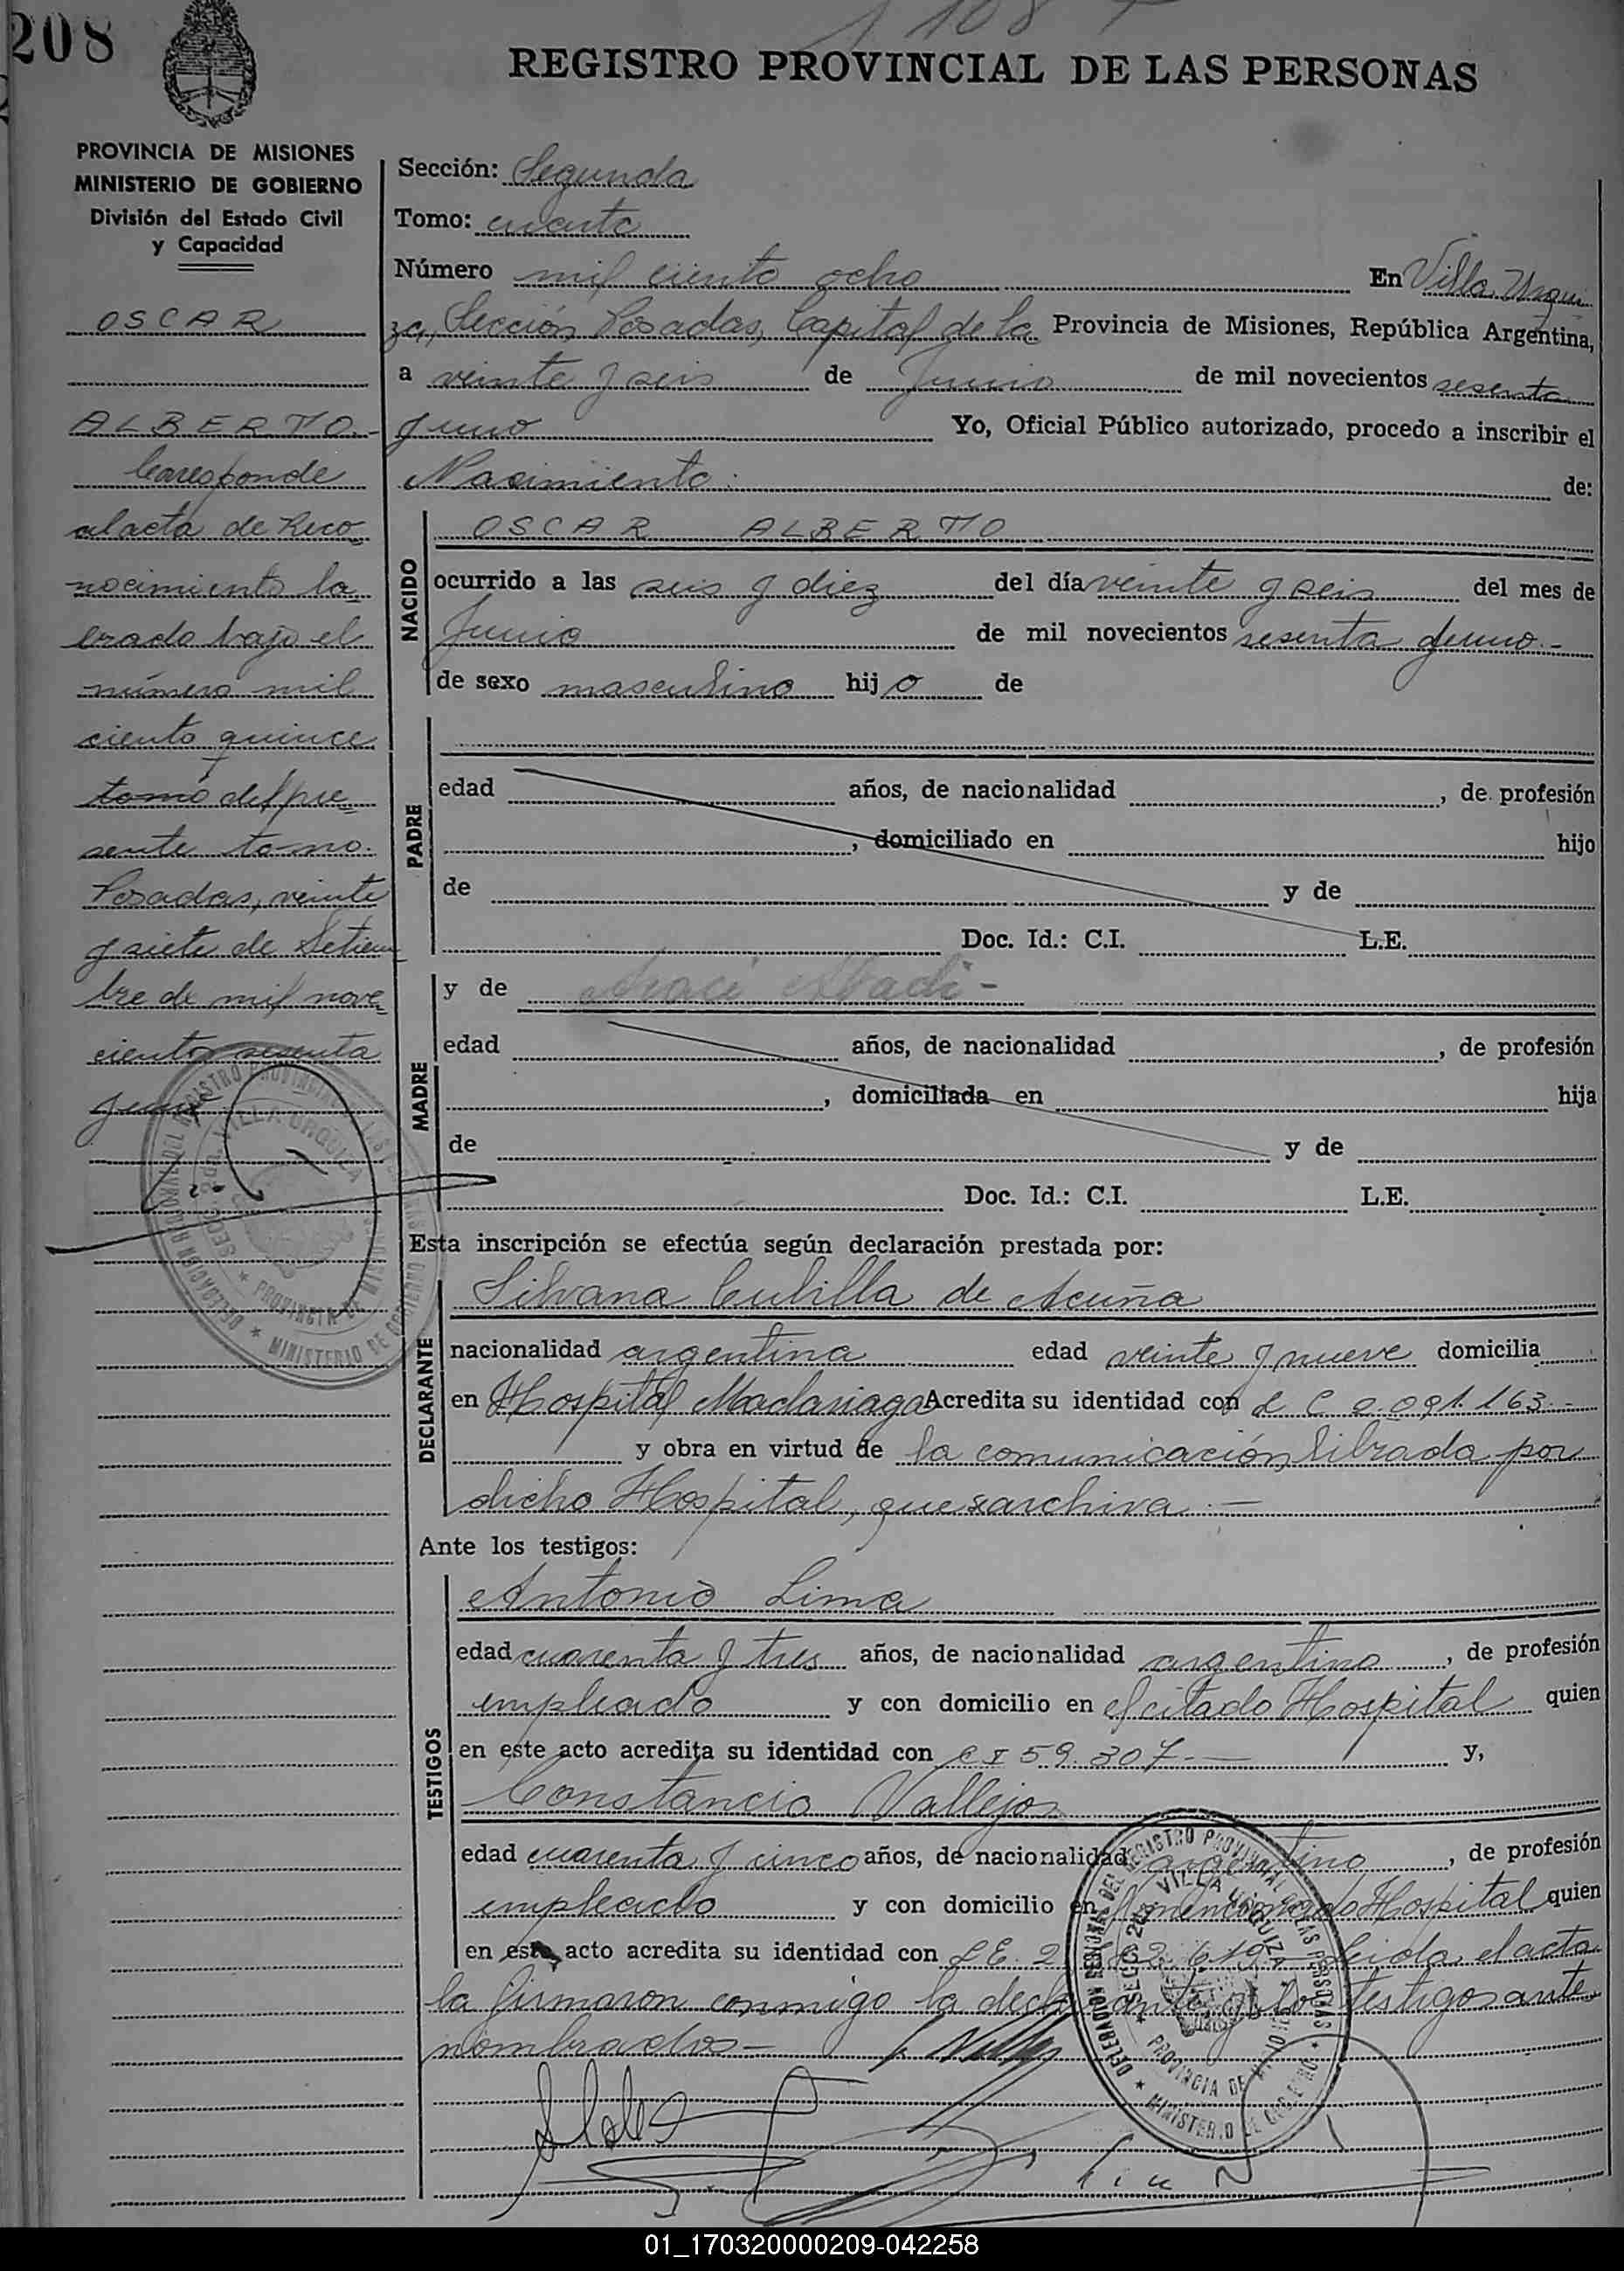 208
1108
REGISTRO PROVINCIAL DE LAS PERSONAS
PROVINCIA DE MISIONES
MINISTERIO DE GOBIERNO
División del Estado Civil
y Capacidad
OSCAR
ALBERTO.-
Corresponde
al acta de Reco-
nocimiento la-
brada bajo el
número mil
ciento quince
tomo del pre-
sente tomo.
Posadas, veinte
y siete de Setiem
bre de mil nove-
ciento sesenta
y uno
Sección: Segunda
Tomo: cuarto
Número mil ciento ocho En Villa Urqui
za, Sección Posadas, Capital de la Provincia de Misiones, República Argentina,
a veinte y seis de Junio de mil novecientos sesenta
y uno Yo, Oficial Público autorizado, procedo a inscribir el
Nacimiento. de:
NACIDO
OSCAR ALBERTO
ocurrido a las seis y diez del día veinte y seis del mes de
Junio de mil novecientos sesenta y uno.-
de sexo masculino hijo de
PADRE
edad años, de nacionalidad , de profesión
, domiciliado en hijo
de y de
Doc. Id.: C.I. L.E.
MADRE
y de
edad años, de nacionalidad , de profesión
, domiciliada en hija
de y de
Doc. Id.: C.I. L.E.
Esta inscripción se efectúa según declaración prestada por:
DECLARANTE
Silvana Cubilla de Acuña
nacionalidad argentina edad veinte y nueve domicilia
en Hospital Madariaga Acredita su identidad con L C 0.091.163.-
y obra en virtud de la comunicación librada por
dicho Hospital, que se archiva.-
Ante los testigos:
TESTIGOS
Antonio Lima
edad cuarenta y tres años, de nacionalidad argentino , de profesión
empleado y con domicilio en el citado Hospital quien
en este acto acredita su identidad con C I 59.307.- y,
Constancio Vallejos
edad cuarenta y cinco años, de nacionalidad argentino , de profesión
empleado y con domicilio en el mencionado Hospital quien
en este acto acredita su identidad con L E. 2 619 Leida el acta
la firmaron conmigo la declarante y los testigos ante
nombrados-
DELEGACION REGIONAL DEL REGISTRO PROVINCIAL DE LAS PERSONAS
SECC. 2da. VILLA URQUIZA
PROVINCIA DE MISIONES
MINISTERIO DE GOBIERNO
01_170320000209-042258